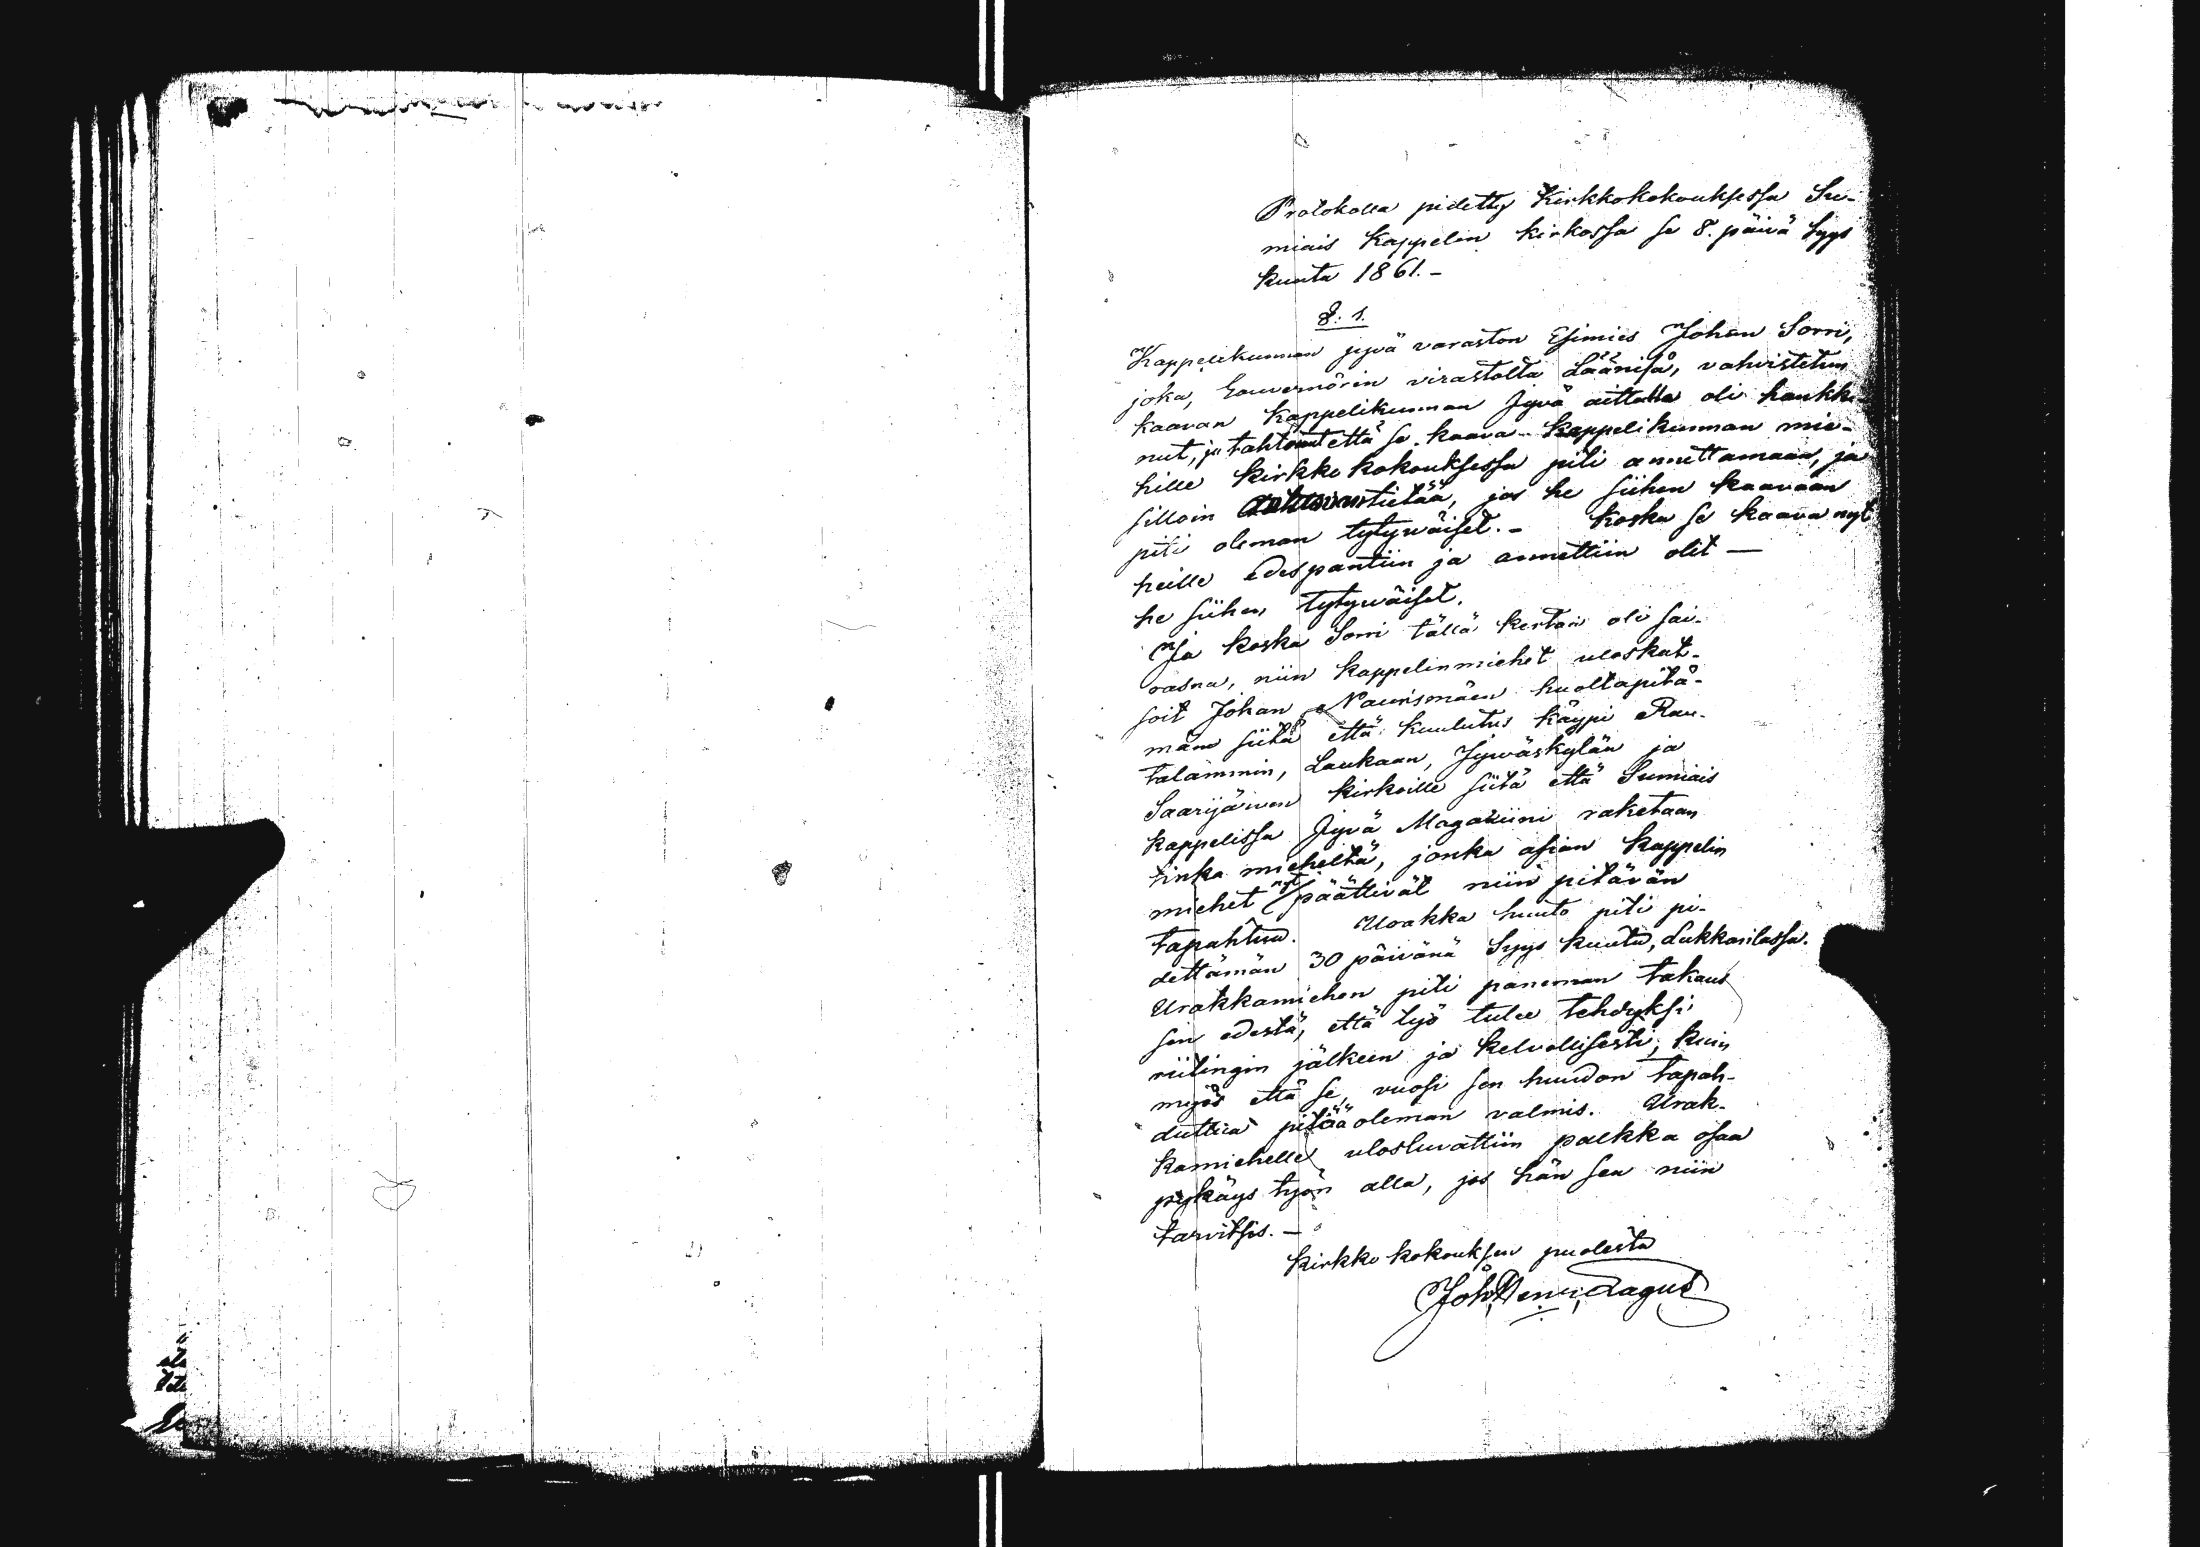 Protokolla pidetty Kirkkokokouksessa Su-
miais Kappelin kirkossa se 8. päivä Syys
kuuta 1861.-
§. 1.
Kappelikunnan jyvä varaston Esimies Johan Sorri,
joka, Gouvernörin virastolta Läänisä, vahvistetun
kaavan Kappelikunnan Jyvä aittalla oli hankki-
nut, ja tahtonut että se kaava Kappelikunnan mie-
hille kirkko kokouksessa piti annettamaan, ja
silloin tietää, jos he siihen kaavaan
piti oleman tytyväiset. - Koska se kaava nyt
heille edespantiin ja annettiin olit —
he siihen tytyväiset.
Ja koska Sorri tällä kertaa oli sai-
rasna, niin kappelinmiehet uloskat-
soit Johan Naurismäen huoltapitä-
män siitä että kuulutus käypi Rau-
talammin, Laukaan, Jyväskylän ja
Saarijärven kirkoille siitä että Sumiais
kappelissa Jyvä Magaziini raketaan
tinka mieheltä, jonka asian Kappelin
miehet nyt päättivät niin pitävän
tapahtua. Urakka huuto piti pi-
dettämän 30 päivänä Syys kuuta, Lukkarilassa.
Urakkamiehen piti paneman takaus
sen edestä, että työ tulee tehdyksi
riitingin jälkeen ja kelvollisesti, kuin
myös että se, vuosi sen huudon tapah-
duttua pitää oleman valmis. Urak-
kamiehelle ulosluvattiin palkka osaa
pykäys työn alla, jos hän sen niin
tarvitsis. —
Kirkko kokouksen puolesta
Joh. Henr. Lagus